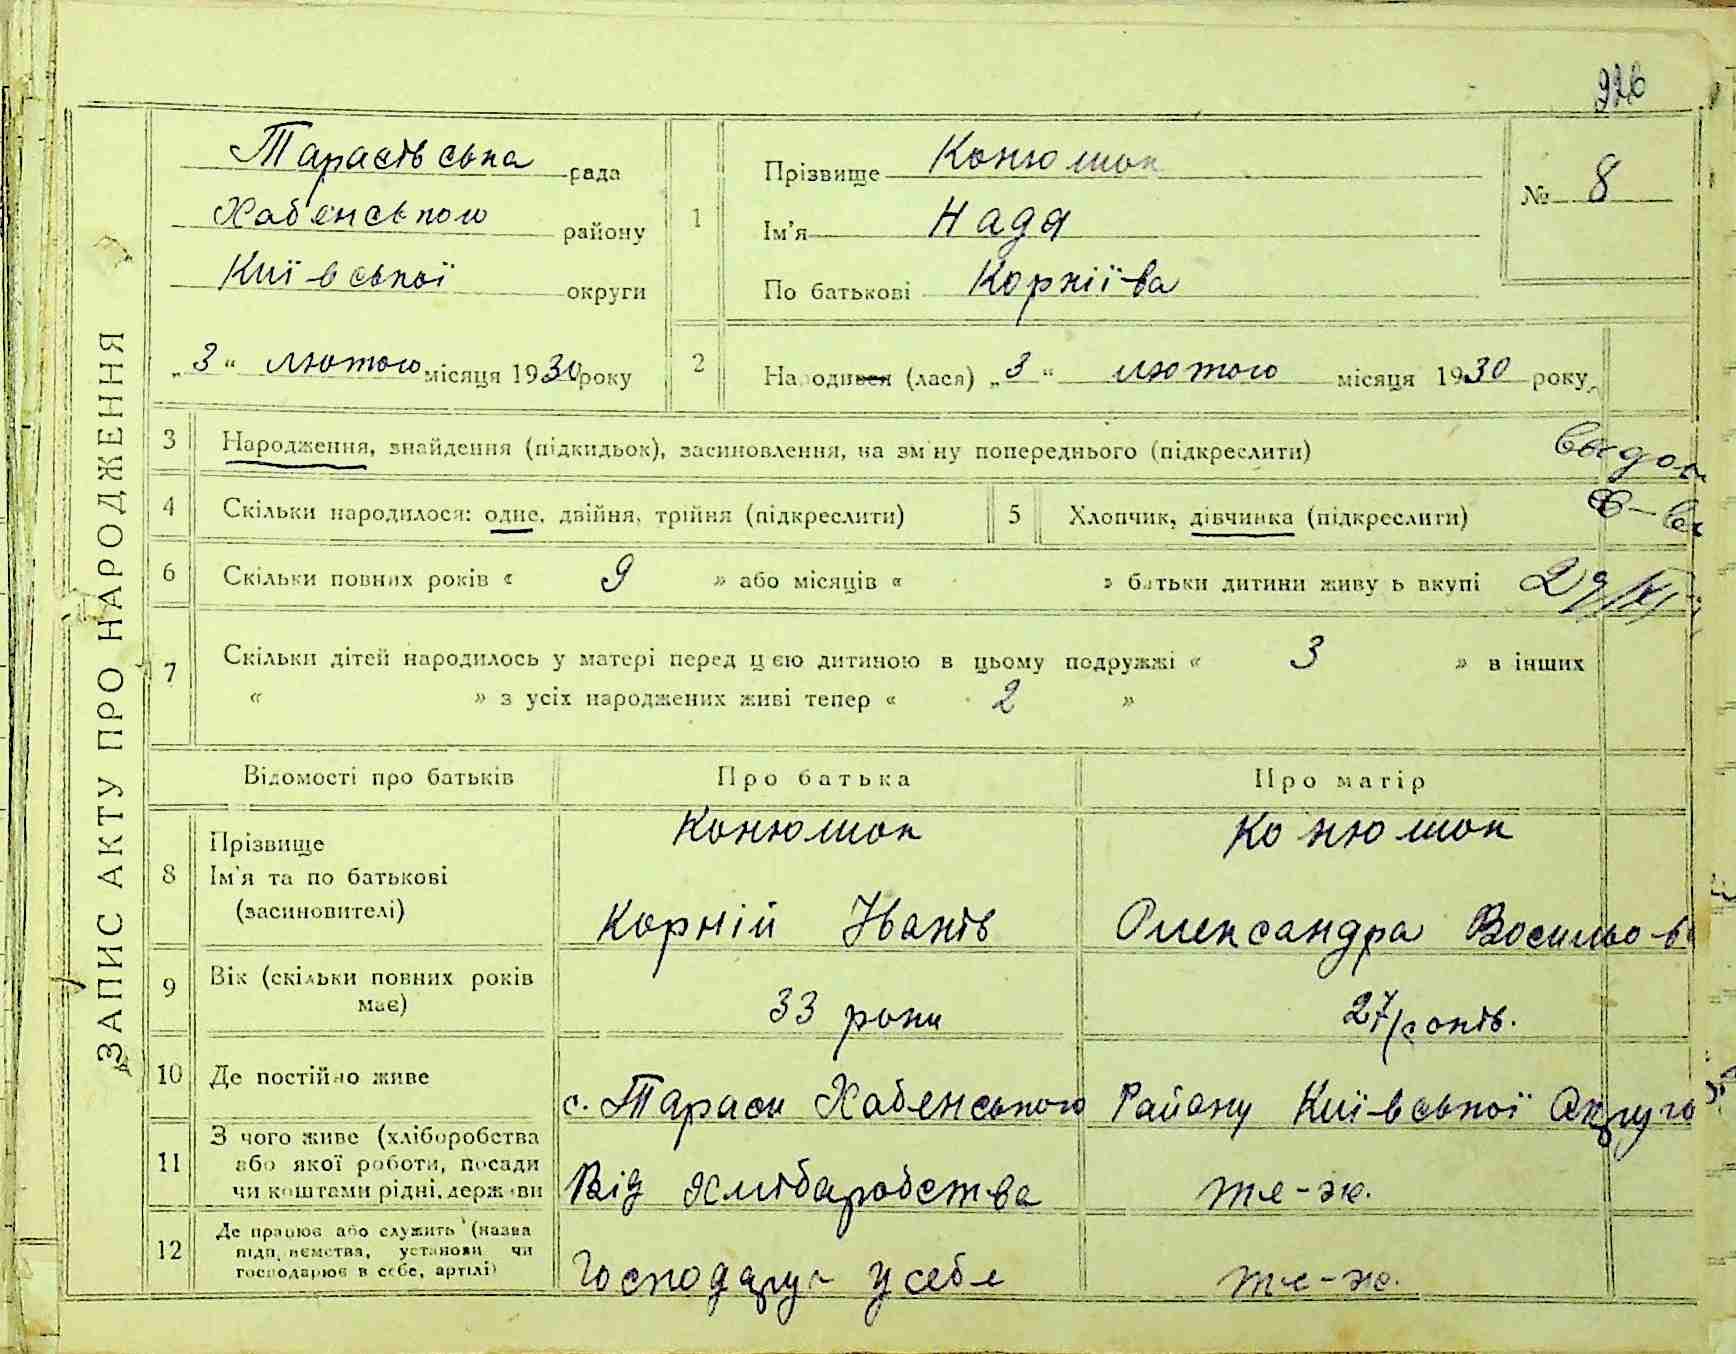 226
ЗАПИС АКТУ ПРО НАРОДЖЕННЯ
Тарасівська рада
Хабенського району
Київської округи
„3“ лютого місяця 1930 року
1
Прізвище Конюшок
Ім'я Надя
По батькові Корніїва
№ 8
2
Народився (лася) „3“ лютого місяця 1930 року
3 Народження, знайдення (підкидьок), засиновлення, на зміну попереднього (підкреслити)
4 Скільки народилося: одне, двійня, трійня (підкреслити)
5 Хлопчик, дівчинка (підкреслити)
6 Скільки повних років « 9 » або місяців « » батьки дитини живуть вкупі
7 Скільки дітей народилось у матері перед цією дитиною в цьому подружжі « 3 » в інших
« » з усіх народжених живі тепер « 2 »
Відомості про батьків Про батька Про матір
8 Прізвище
Ім'я та по батькові
(засиновителі)
Конюшок
Корній Іванів
Конюшок
Олександра Восильов
9 Вік (скільки повних років
має)
33 роки
27 років.
10 Де постійно живе
с. Тараси Хабенського Району Київської Округи
11 З чого живе (хліборобства
або якої роботи, посади
чи коштами рідні, держави
Від хліборобства
те-ж.
12 Де працює або служить (назва
підприємства, установи чи
господарює в себе, артілі)
Господарує у себе
те-ж.